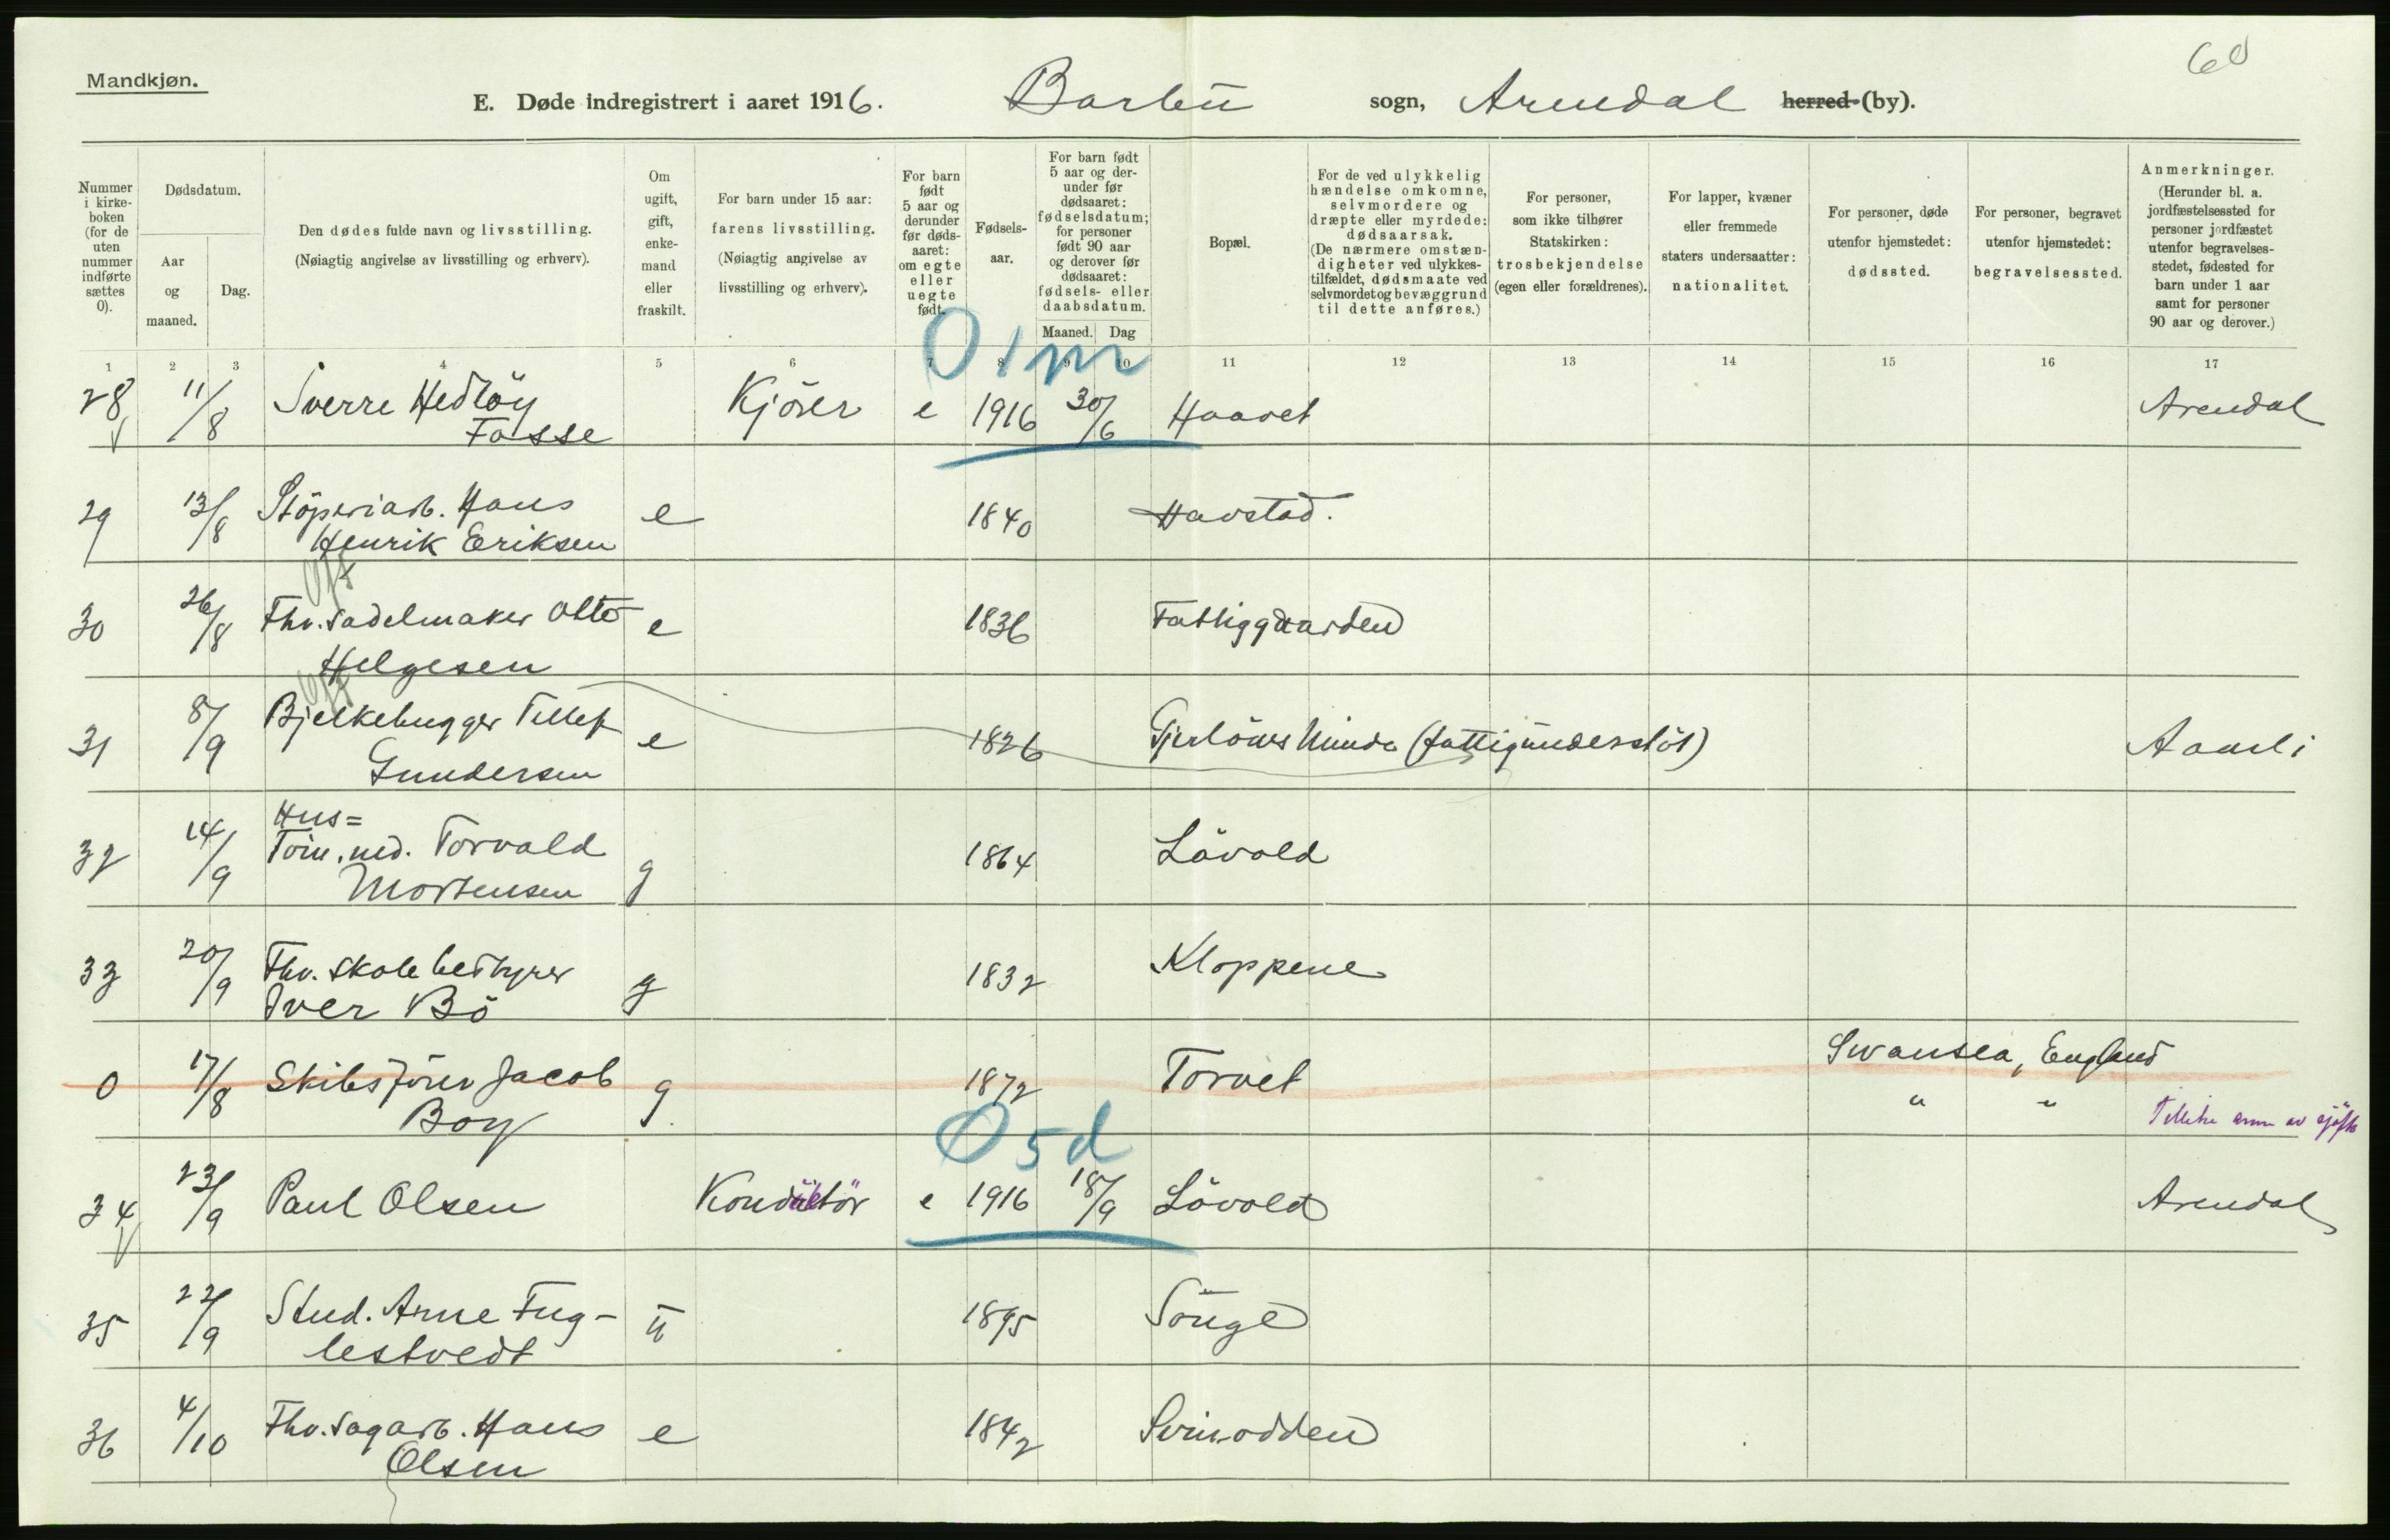 60
Mandkjøn.
E. Døde indregistrert i aaret 1916. Barbu sogn, Arendal herred (by).
Nummer i kirke-boken (for de uten nummer indførte sættes 0).
Dødsdatum.
Aar og maaned.
Dag.
Den dødes fulde navn og livsstilling.
(Nøiagtig angivelse av livsstilling og erhverv).
Om ugift, gift, enke-mand eller fraskilt.
For barn under 15 aar: farens livsstilling. (Nøiagtig angivelse av livsstilling og erhverv).
For barn født 5 aar og derunder før døds-aaret: om egte eller uegte født.
Fødsels-aar.
For barn født 5 aar og der-under før dødsaaret: fødselsdatum; for personer født 90 aar og derover før dødsaaret: fødsels- eller daabsdatum.
Maaned. Dag
Bopæl.
For de ved ulykkelig hændelse omkomne, selvmordere og dræpte eller myrdede: dødsaarsak. (De nærmere omstæn-digheter ved ulykkes-tilfældet, dødsmaate ved selvmordet og bevæggrund til dette anføres.)
For personer, som ikke tilhører Statskirken: trosbekjendelse (egen eller forældrenes).
For lapper, kvæner eller fremmede staters undersaatter: nationalitet.
For personer, døde utenfor hjemstedet: dødssted.
For personer, begravet utenfor hjemstedet: begravelsessted.
Anmerkninger. (Herunder bl. a. jordfæstelsessted for personer jordfæstet utenfor begravelses-stedet, fødested for barn under 1 aar samt for personer 90 aar og derover.)
1 2 3 4 5 6 7 8 9 10 11 12 13 14 15 16 17
0 1 m
28 11/8 Sverre Hedløy Kjörer e 1916 30/6 Haavet Arendal
Fosse
29 13/8 Støperiarb. Hans e 1840 Havstad.
Henrik Eriksen
30 26/8 Fhv. Sadelmaker Otto e 1836 Fattiggaarden
Helgesen
31 8/9 Bjelkehugger Tellef e 1826 Gjerlöws Minde (fattigunderstöt) Aamli
Gundersen
Hus=
32 14/9 Töm. md. Torvald g 1864 Lövold
Mortensen
33 20/9 Fhv. Skolebestyrer g 1832 Kloppene
Iver Bö
0 17/8 Skibsförer Jacob g. 1872 Torvet Swansea, England
Boy " "
0 5 d
34 23/9 Paul Olsen Konduktör e 1916 18/9 Lövold Arendal
35 22/9 Stud. Arne Fug- u 1895 Songe
lestvedt
36 4/10 Fhv. Sagarb. Hans e 1842 Svinodden
Olsen